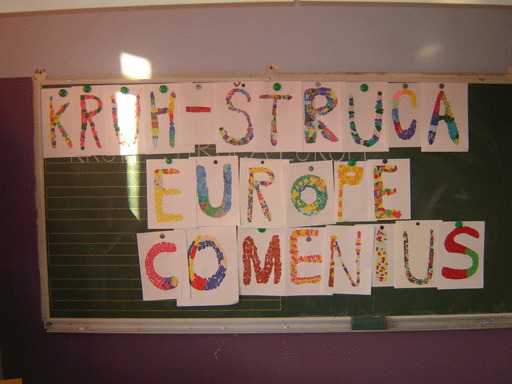 KRUH-ŠTRUCA
EUROPE
COMENIUS